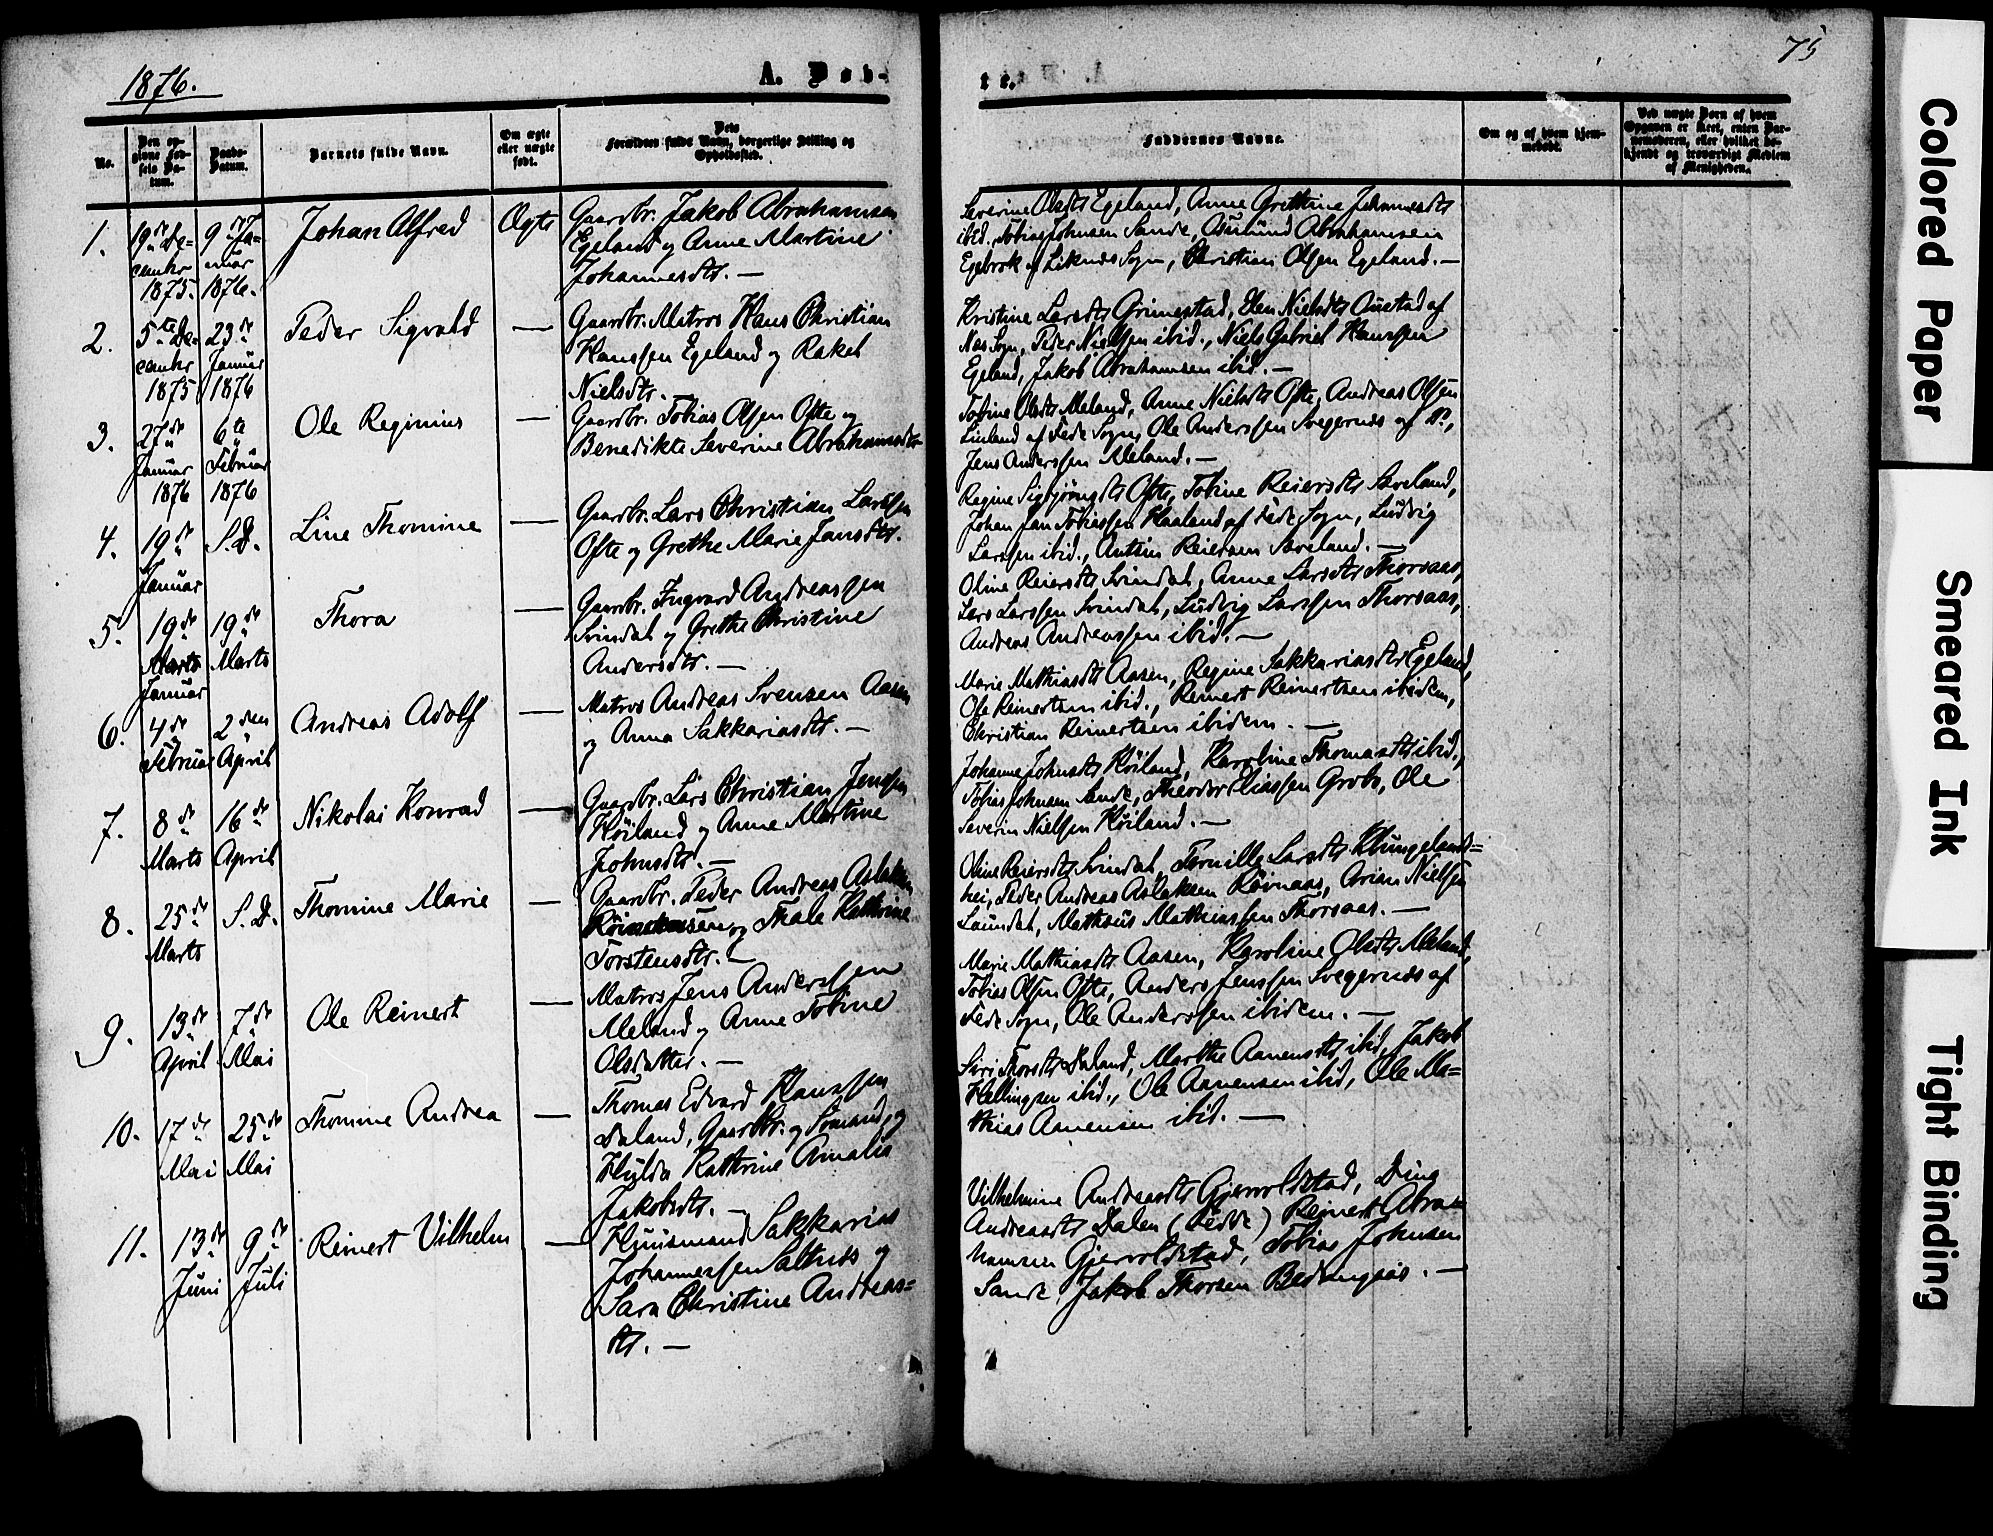 1876.
A. Døb-
te.
75
No.
Den opgivne Fødsels Datum.
Daabs-Datum.
Barnets fulde Navn.
Om ægte eller uægte født.
Dets Forældres fulde Navn, borgerlige Stilling og Opholdssted.
Faddernes Navne.
Om og af hvem hjemmedøbt.
Ved uægte Børn af hvem Opgaven er skeet, enten Barnemoderen, eller hvilket bekjendt og troværdigt Medlem af Menigheden.
1.
19de De-
cembr
1875.
9de Ja-
nuar
1876.
Johan Alfred
Ægte
Gaardbr. Jakob Abrahamsen
Egeland og Anne Martine
Johannesdtr. —
Severine Olsdtr Egeland, Anne Grethine Johannesdtr
ibid., Tobias Johnsen Sande, Aamund Abrahamsen
Egebrok af Liknes Sogn, Christian Olsen Egeland. —
2.
5te De-
cembr
1875
23de
Januar
1876
Peder Sigvald
—
Gaardbr. Matros Hans Christian
Hanssen Egeland og Rakel
Nielsdtr.
Kristine Larsdtr Grimestad, Elen Nielsdtr Austad af
Nes Sogn, Peder Nielsen ibid., Niels Gabriel Hanssen
Egeland, Jakob Abrahamsen ibid. —
3.
27de
Januar
1876
6te
Februar
1876
Ole Reginius
—
Gaardbr. Tobias Olsen Ofte og
Benedikte Severine Abrahamsdtr
Tobine Olsdtr Meland, Anne Nielsdtr Ofte, Andreas Olsen
Linland af Fede Sogn, Ole Anderssen Svegernes af Do,
Jens Anderssen Meland. —
4.
19de
Januar
S.D.
Line Thomine
—
Gaardbr. Lars Christian Larssen
Ofte og Grethe Marie Jansdtr.
Regine Sigbjørnsdtr Ofte, Tobine Reiersdtr Sæveland,
Johan Jan Tobiassen Haaland af Fede Sogn, Ludvig
Larssen ibid., Antoni Reiersen Sæveland. —
5.
19de
Marts
Januar
19de
Marts
Thora
—
Gaardbr. Ingvard Andreassen
Svindal og Grethe Christine
Andersdtr. —
Oline Reiersdtr Svindal, Anne Larsdtr Thorsaas,
Lars Larssen Svindal, Ludvig Larssen Thorsaas,
Andreas Andreassen ibid. —
6.
4de
Februar
2den
April
Andreas Adolf
—
Matros Andreas Svensen Aasen
og Anna Sakkariasdtr. —
Marie Mathiasdtr Aasen, Regine Sakkariasdtr Egeland,
Ole Reinertsen ibid., Reinert Reinertsen ibidem,
Christian Reinertsen ibidem. —
7.
8de
Marts
16de
April
Nikolai Konrad
—
Gaardbr. Lars Christian Jenssen
Høiland og Anne Martine
Johnsdtr. —
Johanne Johnsdtr Høiland, Karoline Thomasdtr ibid.,
Tobias Johnsen Sande, Theodor Eliassen Grobs, Ole
Severin Nielsen Høiland. —
8.
25de
Marts
S.D.
Thomine Marie
—
Gaardbr. Peder Andreas Aslaksen
og Thale Kathrine
Torstensdtr. —
Oline Reiersdtr Svindal, Pernille Larsdtr Klungelands=
hei, Peder Andreas Aslaksen Røvnaas, Arian Nielsen
Laundal, Matheus Mathiassen Thorsaas. —
9.
13de
April
7de
Mai
Ole Reinert
—
Matros Jens Anderssen
Meland og Anne Tobine
Olsdatter. —
Marie Mathiasdtr Aasen, Karoline Olsdtr Meland,
Tobias Olsen Ofte, Anders Jenssen Svegernes af
Fede Sogn, Ole Anderssen ibidem. —
10.
17de
Mai
25de
Mai
Thomine Andrea
—
Thomas Edvard Hanssen
Daland, Gaardbr. og Sømand, og
Hulda Kathrine Amalia
Jakobsdtr. —
Siri Thorsdtr Daland, Marthe Aanensdtr ibid., Jakob
Hellingsen ibid., Ole Aanensen ibid, Ole Ma=
thias Aanensen ibid. —
11.
13de
Juni
9de
Juli
Reinert Vilhelm
—
Huusmand Sakkarias
Johannessen Saltnes og
Sara Christine Andreas=
dtr. —
Vilhelmine Andreasdtr Gjervoldstad, Dina
Andreasdtr Dalen (Fedde) Reinert Abra=
hamsen Gjervoldstad, Tobias Johnsen
Sande, Jakob Thorsen —
Colored Paper
Smeared Ink
Tight Binding